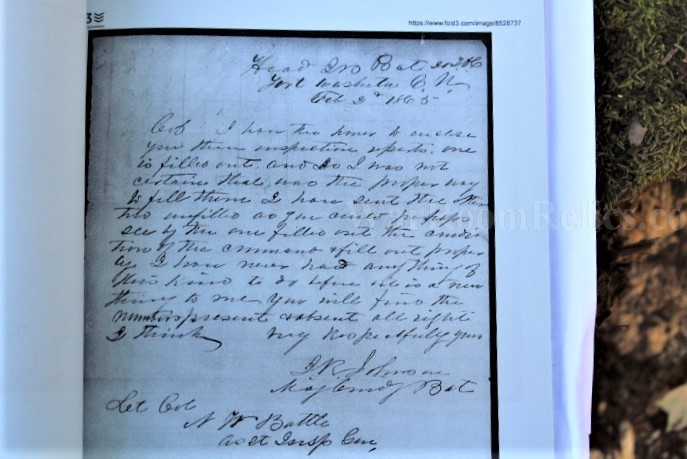 3
https://www.fold3.com/image/8528737
Head Qrs Bat
Fort Washita C. N.
Feb 2d 1865
Col I have the honor to enclose
you three inspection reports. one
is filled out, and as I was not
certain that was the proper way
to fill them I have sent the other
two unfilled as you could perhaps
see by the one filled out the condi-
tion of the command & fill out proper
ly. I have never had any thing of
this kind to do before it is a new
thing to me you will find the
numbers present & absent all right
I think Very Respectfully yours
Johnson
Maj Comdg Bat
Let Col
N W Battle
Asst Insp Gen,